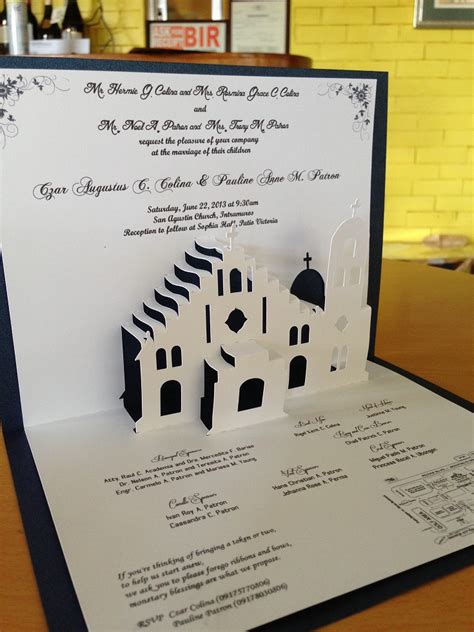 ASK FOR
RECEIPT
BIR
Mr. Hermie G. Colina and Mrs. Rosmina Grace C. Colina
and
Mr. Noel A. Patron and Mrs. Trany M. Patron
request the pleasure of your company
at the marriage of their children
Czar Augustus C. Colina & Pauline Anne M. Patron
Saturday, June 22, 2013 at 9:30am
San Agustin Church, Intramuros
Reception to follow at Sophia Hall, Patio Victoria
Principal Sponsors
Atty Raul C. Academia and Dra. Mercedita F.
Dr. Nelson A. Patron and Teresita A. Patron
Engr. Carmelo A. Patron and Marissa M. Young
Candle Sponsors
Ivan Roy A. Patron
Cassandra C. Patron
Best Man
Colina
Veil Sponsors
Hans Christian A. Patron
Johanna Rose A. Parma
Justinne M. Young
Ring and Coin Bearers
Chad Patrick C. Patron
Cord Sponsors
Paolo M. Patron
Princess
If you're thinking of bringing a token or two,
to help us start anew,
we ask you to please forego ribbons and bows,
monetary blessings are what we propose.
RSVP Czar Colina (09173770806)
Pauline Patron (09178030806)